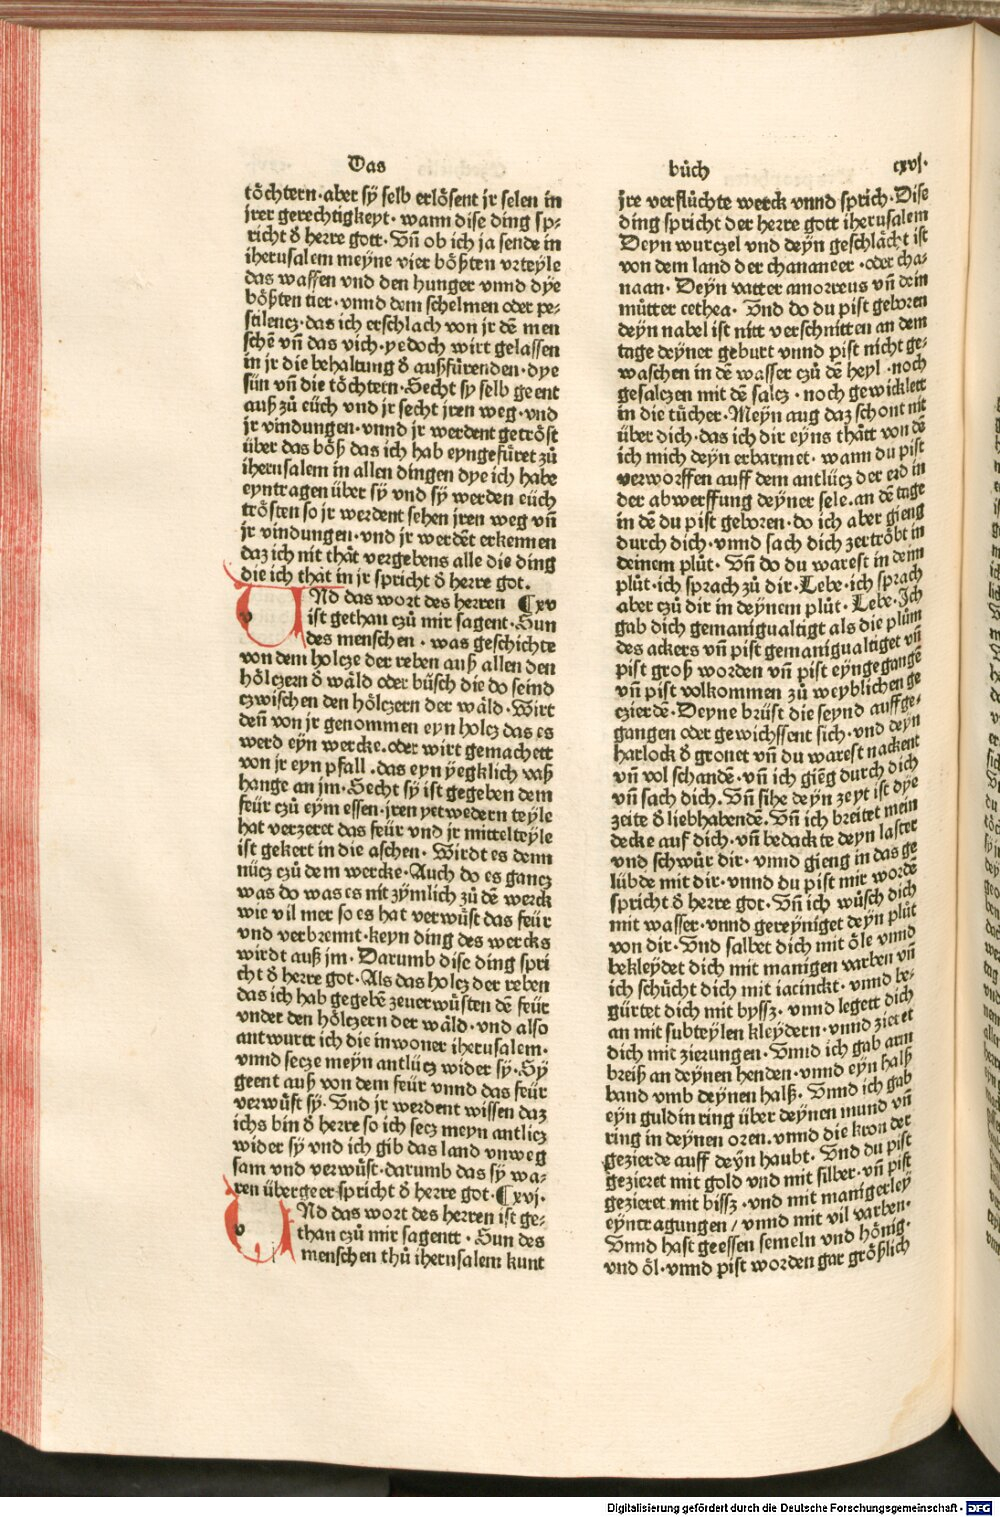 Das
töchtern·aber sy̆ selb erlösent jr selen in
jrer gerechtigkeyt· wann dise ding sp⸗
richt d̕ herre gott· Vn̄ ob ich ja sende in
iherusalem meyne vier bößten vrteyle
das waffen vnd den hunger vnnd dye
bößten tier·vnnd dem schelmen oder pe⸗
stilencz·das ich erschlach von jr dē men
schē vn̄ das vich·yedoch wirt gelassen
in jr die behaltung d̕ außfürenden·dye
sün vn̄ die töchtern·Secht sy̆ selb geent
auß zů eüch vnd jr secht jren weg·vnd
jr vindungen·vnnd jr werdent getröst
über das böß das ich hab eyngefüret zů
iherusalem in allen dingen dye ich habe
eyntragen über sy̆ vnd sy̆ werden eüch
trösten so jr werdent sehen jren weg vn̄
jr vindungen·vnd jr werdēt erkennen
daz ich nit thät vergebens alle die ding
die ich thät in jr spricht d̕ herre got.
VNd das wort des herren ¶xv
ist gethan czů mir sagent·Sun
des menschen·was geschichte
von dem holcze der reben auß allen den
hölczern d̕ wäld oder büsch die do seind
czwischen den hölczern der wäld·Wirt
deñ von jr genommen eyn holcz das es
werd ey̆n wercke.oder wirt gemachett
von jr eyn pfall.das eyn yegklich vaß
hange an jm·Secht sy̆ ist gegeben dem
feür czů eym essen·jren yetwedern teyle
hat verzeret das feür vnd jr mittelteyle
ist gekert in die aschen·Wirdt es denn
nücz czů dem wercke·Auch do es gancz
was do was es nit zymlich zů dē werck
wie vil mer so es hat verwüst das feür
vnd verbrennt·keyn ding des wercks
wirdt auß jm·Darumb dise ding spri
cht d̕ herre got·Als das holcz der reben
das ich hab gegebē zeuerwüsten dē feür
vnder den hölczern der wäld·vnd also
antwurtt ich die inwoner iherusalem·
vnnd secze mey̆n antlücz wider sy̆·Sy̆
geent auß von dem feür vnnd das feür
verwüst sy̆·Vnd jr werdent wissen daz
ichs bin d̕ herre so ich secz meyn antlücz
wider sy̆ vnd ich gib das land vnweg
sam vnd verwüst·darumb das sy̆ wa⸗
ren übergeer spricht d̕ herre got·¶xvj·
VNd das wort des herren ist ge⸗
than czů mir sagentt·Sun des
menschen thů iherusalem kunt
bůch cxvj·
jre verflüchte werck vnnd sprich·Dise
ding spricht der herre gott iherusalem
Deyn wurczel vnd dey̆n geschlächt ist
von dem land der chananeer·oder cha⸗
naan·Dey̆n vatter amorreus vn̄ dein
můtter cethea·Vnd do du pist geboren
dey̆n nabel ist nitt verschnitten an dem
tage dey̆ner geburt vnnd pist nicht ge⸗
waschen in dē wasser czů dē heyl·noch
gesalczen mit dē salcz·noch gewicklett
in die tücher·Mey̆n aug daz schont nit
über dich·das ich dir eyns thätt von dē
ich mich dey̆n erbarmet·wann du pist
verworffen auff dem antlücz der erd in
der abwerffung dey̆ner sele.an dē tage
in dē du pist geboren·do ich aber gieng
durch dich·vnnd sach dich zertröbt in
deinem plůt·Vn̄ do du warest in deim
plůt·ich sprach zů dir·Lebe·ich sprach
aber czů dir in dey̆nem plůt·Lebe·Ich
gab dich gemanigualtigt als die plům
des ackers vn̄ pist gemanigualtiget vn̄
pist groß worden vn̄ pist eyngegangē
vn̄ pist volkommen zů weyblichen ge
czierdē·Deyne brüst die seynd auffge⸗
gangen oder gewichssent sich·vnd dey̆n
harlock d̕ gronet vn̄ du warest nackent
vn̄ vol schandē·vn̄ ich giēg durch dich
vn̄ sach dich.Vn̄ sihe dey̆n zeyt ist dye
zeite d̕ liebhabendē.Vn̄ ich breitet mein
decke auf dich·vn̄ bedackte deyn laster
vnd schwůr dir·vnnd gieng in das ge
lübde mit dir·vnnd du pist mir wordē
spricht d̕ herre got·Vn̄ ich wüsch dich
mit wasser·vnnd gereyniget dey̆n plůt
von dir·Vnd salbet dich mit öle vnnd
bekley̆det dich mit manigen varben vn̄
ich schůcht dich mit iacinckt·vnnd be⸗
gürtet dich mit byssz·vnnd legett dich
an mit subteylen kley̆dern·vnnd zieret
dich mit zierungen·Vnnd ich gab arm
breiß an dey̆nen henden·vnnd eyn halß
band vmb dey̆nen halß·Vnnd ich gab
eyn guldin ring über dey̆nen mund vn̄
ring in dey̆nen oren.vnnd die kron der
gezierde auff dey̆n haubt·Vnd du pist
gezieret mit gold vnd mit silber·vn̄ pist
gezieret mit bissz·vnd mit manigerley
eyntragungen/vnnd mit vil varben·
Vnnd hast geessen semeln vnd hönig·
vnd öl·vnnd pist worden gar größlich
Digitalisierung gefördert durch die Deutsche Forschungsgemeinschaft - DFG